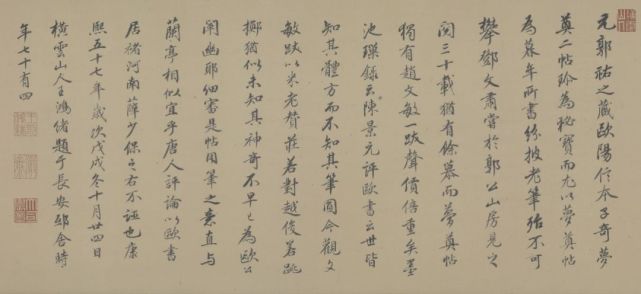 元郭祐之藏歐陽信本子奇夢
奠二帖珍為秘寶而尤以夢奠帖
為暮年所書紛披老筆殆不可
攀鄧文肅嘗於郭公山房見之
閱三十載猶有餘慕而夢奠帖
獨有趙文敏一跋聲價倍重矣墨
池璅錄云陳景元評歐書云世皆
知其體方而不知其筆圓今觀文
敏跋以米老聱莊若對越俊若跳
擲猶似未知其神奇不早已為歐公
闡幽耶細審是帖用筆之秉直與
蘭亭相似宜乎唐人評論以歐書
居褚河南薛少保之右不誣也康
熙五十七年歲次戊戌冬十月廿四日
橫雲山人王鴻緒題于長安邸舍時
年七十有四